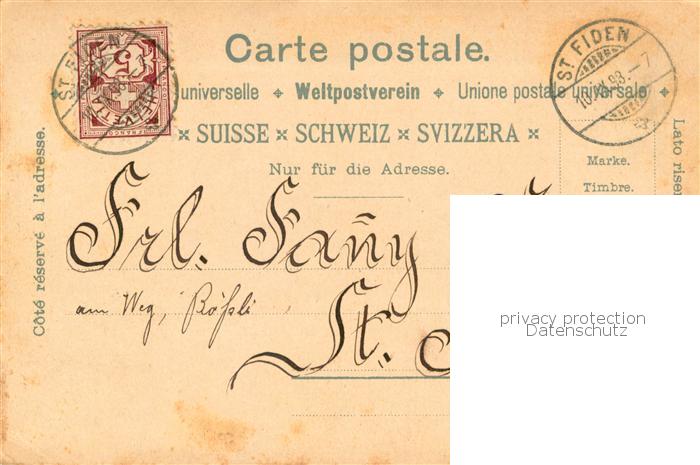 Carte postale.
universelle Weltpostverein Unione postale universale
SUISSE × SCHWEIZ × SVIZZERA
Nur für die Adresse.
Côté réservé à l'adresse.
ST. FIDEN
HELVETIA
5
ST. FIDEN
Marke.
Timbre.
Lato riser
Frl. Fañy
am Weg, Rößli
St.
privacy protection
Datenschutz